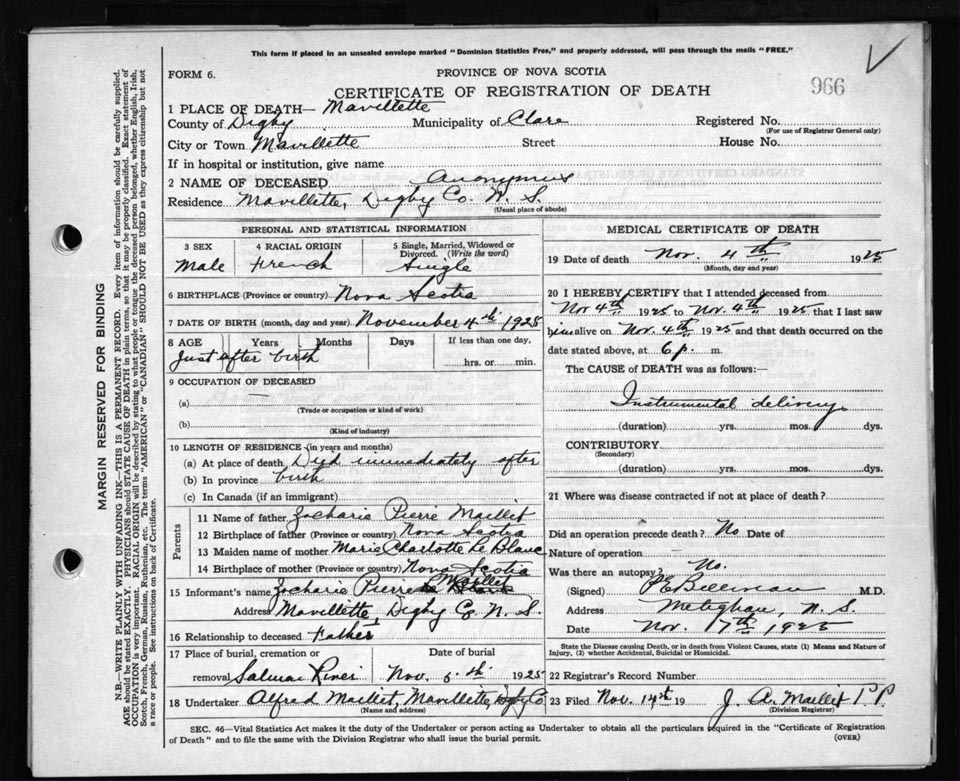 This form if placed in an unsealed envelope marked "Dominion Statistics Free," and properly addressed, will pass through the mails "FREE."
FORM 6.
PROVINCE OF NOVA SCOTIA
966
CERTIFICATE OF REGISTRATION OF DEATH
1 PLACE OF DEATH— Mavillette
County of Digby Municipality of Clare Registered No.
(For use of Registrar General only)
City or Town Mavillette Street House No.
If in hospital or institution, give name
2 NAME OF DECEASED Anonymus
Residence Mavillette, Digby Co. N. S.
(Usual place of abode)
PERSONAL AND STATISTICAL INFORMATION
3 SEX 4 RACIAL ORIGIN 5 Single, Married, Widowed or Divorced. (Write the word)
Male French Single
6 BIRTHPLACE (Province or country) Nova Scotia
7 DATE OF BIRTH (month, day and year) November 4th 1925
8 AGE Years Months Days If less than one day,
Just after birth hrs. or min.
9 OCCUPATION OF DECEASED
(a) —
(Trade or occupation or kind of work)
(b)
(Kind of industry)
10 LENGTH OF RESIDENCE (in years and months)
(a) At place of death Dyed immediately after
(b) In province birth
(c) In Canada (if an immigrant)
Parents
11 Name of father Zacharie Pierre Maillet
12 Birthplace of father (Province or country) Nova Scotia
13 Maiden name of mother Marie Charlotte Le Blanc
14 Birthplace of mother (Province or country) Nova Scotia
15 Informant's name Zacharie Pierre Maillet
Address Mavillette, Digby Co. N. S.
16 Relationship to deceased Father
17 Place of burial, cremation or Date of burial
removal Salmon River Nov. 5th 1925
18 Undertaker Alfred Maillet, Mavillette, Digby Co
(Name and address)
MEDICAL CERTIFICATE OF DEATH
19 Date of death Nov. 4th 1925
(Month, day and year)
20 I HEREBY CERTIFY that I attended deceased from
Nov 4th 1925 to Nov. 4th 1925 that I last saw
him alive on Nov. 4th 1925 and that death occurred on the
date stated above, at 6 p. m.
The CAUSE of DEATH was as follows:—
Instrumental delivery
(duration) yrs. mos. dys.
CONTRIBUTORY
(Secondary)
(duration) yrs. mos. dys.
21 Where was disease contracted if not at place of death?
Did an operation precede death? No Date of
Nature of operation —
Was there an autopsy? No.
(Signed) M.D.
Address Meteghan, N. S.
Date Nov. 17th 1925
State the Disease causing Death, or in death from Violent Causes, state (1) Means and Nature of Injury, (2) whether Accidental, Suicidal or Homicidal.
22 Registrar's Record Number
23 Filed Nov. 19 J. A. Maillet P.P.
(Division Registrar)
SEC. 46—Vital Statistics Act makes it the duty of the Undertaker or person acting as Undertaker to obtain all the particulars required in the "Certificate of Registration
of Death" and to file the same with the Division Registrar who shall issue the burial permit. (OVER)
MARGIN RESERVED FOR BINDING
N.B.—WRITE PLAINLY WITH UNFADING INK—THIS IS A PERMANENT RECORD. Every item of information should be carefully supplied.
AGE should be stated EXACTLY. PHYSICIANS should STATE CAUSE OF DEATH in plain terms, so that it may be properly classified. Exact statement of
OCCUPATION is very important. RACIAL ORIGIN will be described by stating to what people or tongue the deceased person belonged, whether English, Irish,
Scotch, French, German, Russian, Ruthenian, etc. The terms "AMERICAN" or "CANADIAN" SHOULD NOT BE USED as they express citizenship but not
a race or people. See instructions on back of Certificate.